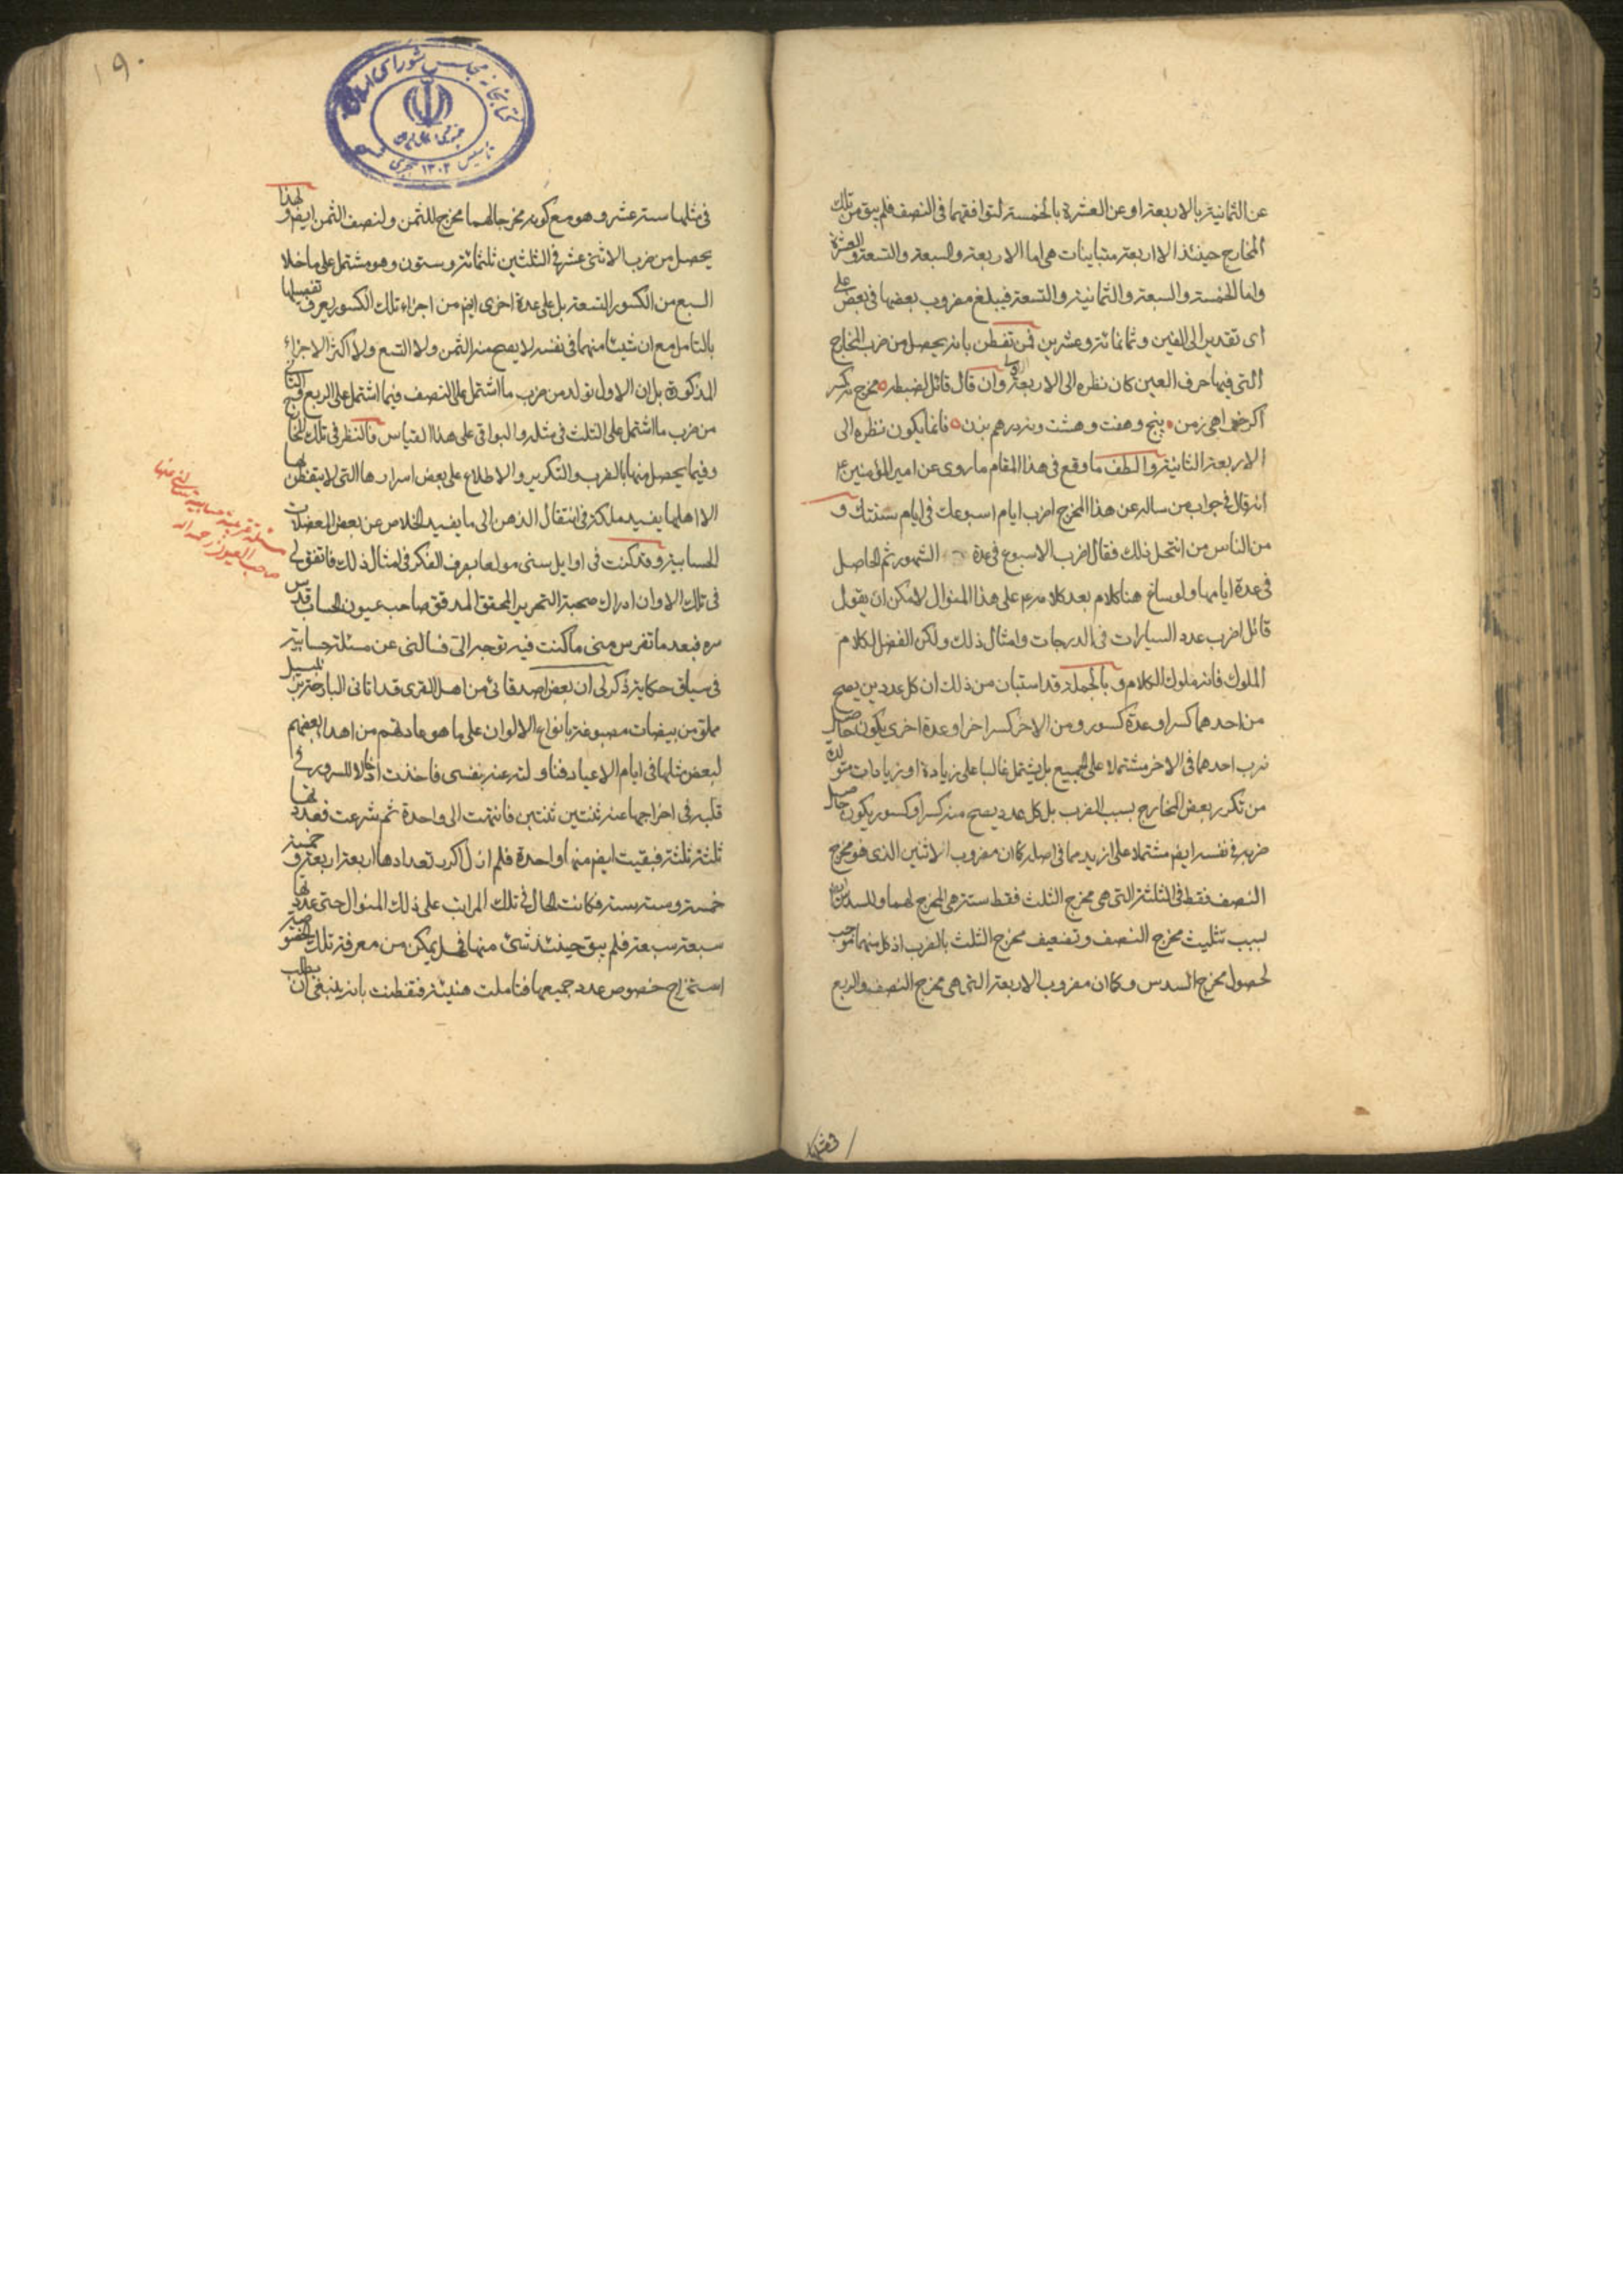 عن الثمانية بالاربعة او عن العشرة بالخمسة لتوافقهما فى النصف فلم يبق من تلك
المخارج حينئذ الا اربعة متباينات هى اما الاربعة والسبعة والتسعة والعشرة
واما الخمسة والسبعة والثمانية والتسعة فيبلغ مضروب بعضها فى بعض على
اى تقدير الى الفين وثمانمائة وعشرين فمن تفطن بانه يحصل من ضرب المخارج
التى فيها حرف العين كان نظره الى الاربعة الاولى وان قال قائل لضبطه مخرج نه كسر
اكر خواهى زمن پنج وهفت وهشت ونه درهم بزن فانما يكون نظره الى
الاربعة الثانية والطف ما وقع فى هذا المقام ما روى عن امير المؤمنين ع
انه قال فى جواب من ساله عن هذا المخرج اضرب ايام اسبوعك فى ايام سنتك و
من الناس من انتحل ذلك فقال اضرب الاسبوع فى عدة الشهور ثم الحاصل
فى عدة ايامها ولو ساغ هنا كلام بعد كلامه ع على هذا المنوال لامكن ان يقول
قائل اضرب عدد السيارات فى الدرجات وامثال ذلك ولكن الفضل لكلام
الملوك فانه ملوك الكلام وبالجملة قد استبان من ذلك ان كل عددين يصح
من احدهما كسر او عدة كسور ومن الاخر كسر اخر او عدة اخرى يكون حاصل
ضرب احدهما فى الاخر مشتملا على الجميع بل يشتمل غالبا على زيادة او زيادات متولدة
من تكرر بعض المخارج بسبب الضرب بل كل عدد يصح منه كسر او كسور يكون حاصل
ضربه فى نفسه ايضم مشتملا على ازيد مما فى اصله كان مضروب الاثنين الذى هو مخرج
النصف فقط فى الثلثة التى هى مخرج الثلث فقط ستة هى المخرج لهما وللسدس ايضا
بسبب تثليث مخرج النصف وتضعيف مخرج الثلث بالضرب اذ كل منهما موجب
لحصول مخرج السدس وكان مضروب الاربعة التى هى مخرج النصف والربع
فى مثلها
١٩٠
كتابخانه مجلس شوراى
تاسيس ١٣٠٢ هجرى
فى مثلها ستة عشر وهو مع كونه مخرجا لهما مخرج للثمن ولنصف الثمن ايضم ولهذا
يحصل من ضرب الاثنى عشر فى الثلثين ثلثمائة وستون وهو مشتمل على ما خلا
السبع من الكسور التسعة بل على عدة اخرى ايضم من اجزاء تلك الكسور يعرف تفصيلها
بالتامل مع ان شيئا منهما فى نفسه لا يصح منه الثمن ولا التسع ولا اكثر الاجزاء
المذكورة بل ان الاول تولد من ضرب ما اشتمل على النصف فيما اشتمل على الربع والتاسع
من ضرب ما اشتمل على الثلث فى مثله والبواقى على هذا القياس فالنظر فى تلك المخارج
وفيما يحصل منها بالضرب والتكرير والاطلاع على بعض اسرارها التى لا يتفطن لها
الا اهلها يفيد ملكة فى انتقال الذهن الى ما يفيد الخلاص عن بعض المعضلات
الحسابية وقد كنت فى اوايل سنى مولعا بصرف الفكر فى امثال ذلك فاتفق لى
فى تلك الاوان ادراك صحبة النحرير المحقق المدقق صاحب عيون الحساب قدس
سره فبعد ما تفرس منى ما كنت فيه توجه الى فسالنى عن مسئلة حسابية
فى سياق حكاية ذكر لى ان بعض اصدقائى من اهل القرى قد اتانى البارحة بزنبيل
مملو من بيضات مصبوغة بانواع الالوان على ما هو عادتهم من اهداء بعضهم
لبعض مثلها فى ايام الاعياد فتناولته عنه بنفسى فاخذت ادخالا للسرور فى
قلبه فى اخراجها عنه ثنتين ثنتين فانتهت الى واحدة ثم شرعت فعددتها
ثلثة ثلثة فبقيت ايضم منها واحدة فلم ازل اكرر تعدادها اربعة اربعة وخمسة
خمسة وستة ستة فكانت الحال فى تلك المراتب على ذلك المنوال حتى عددتها
سبعة سبعة فلم يبق حينئذ شئ منها فهل يمكن من معرفة تلك الخصوصية
استخراج خصوص عدد جميعها فتاملت هنيئة فتفطنت بانه ينبغى ان يطلب
صاحب العيون رحمه الله